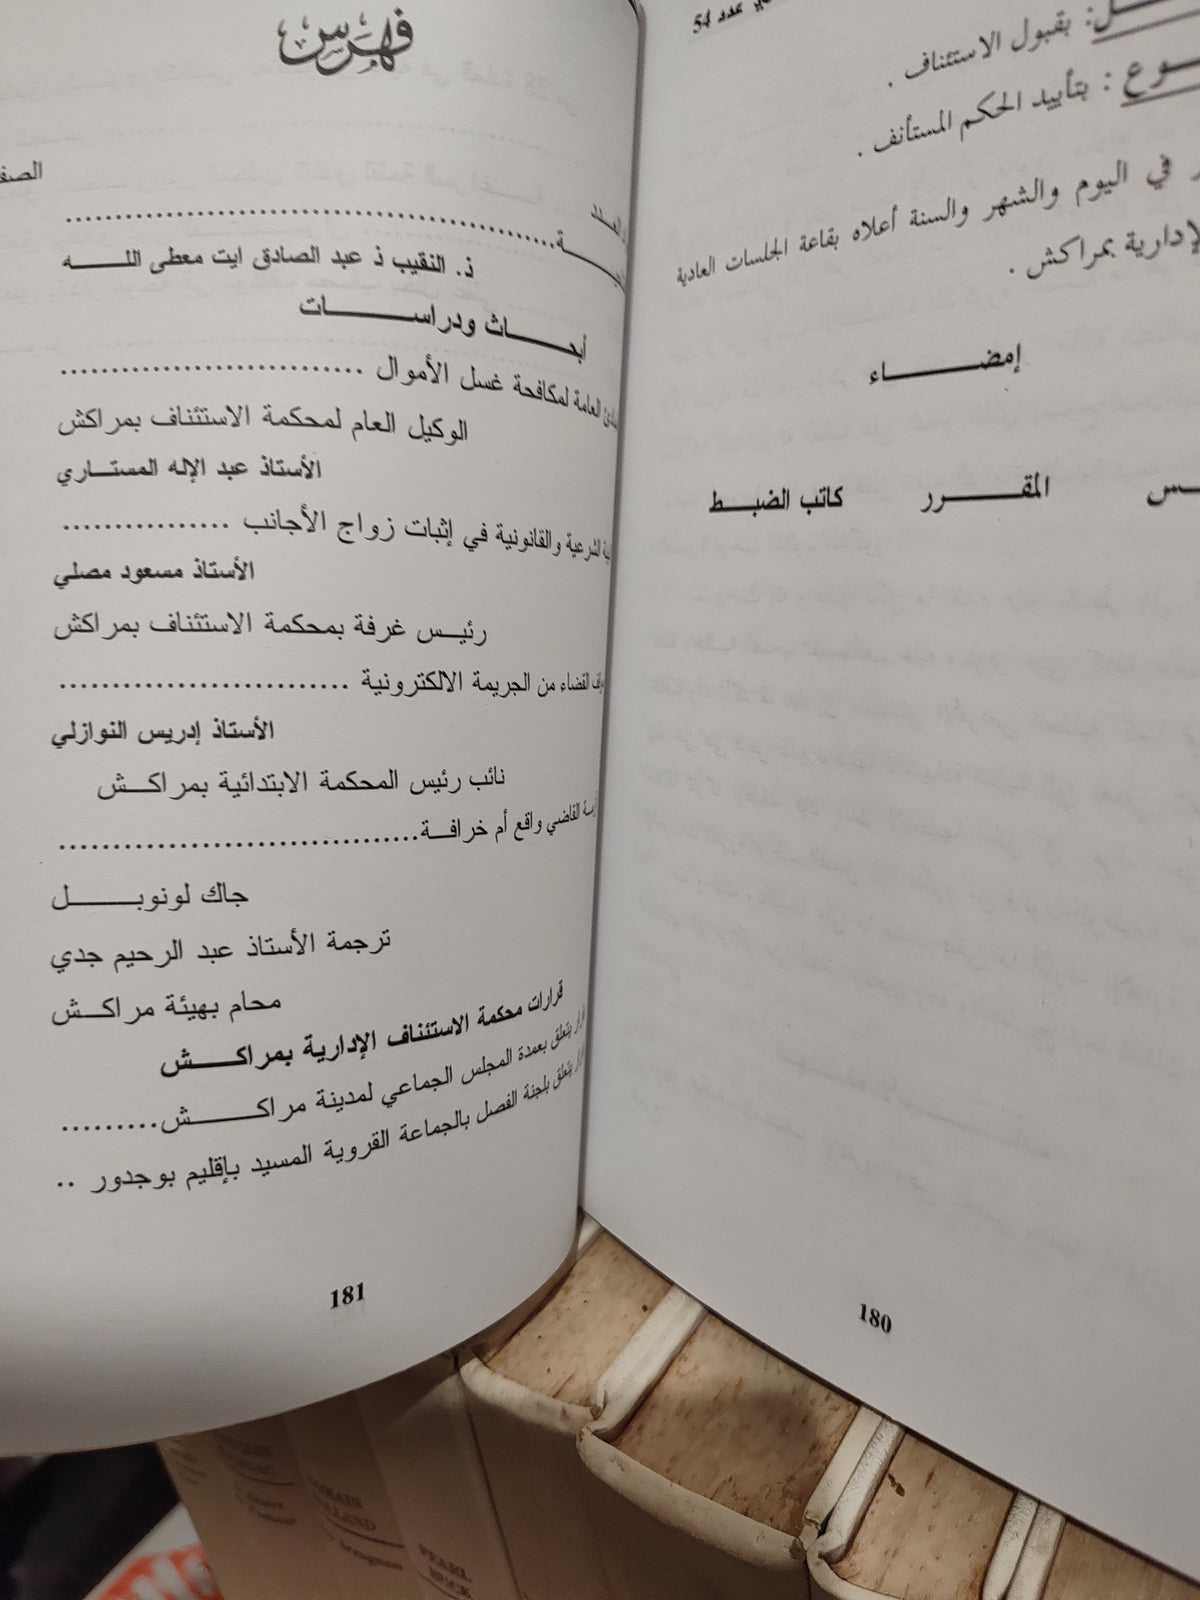 عدد 54
: بقبول الاستئناف .
: بتأييد الحكم المستأنف .
في اليوم والشهر والسنة أعلاه بقاعة الجلسات العادية
بمراكش .
إمضـــــــاء
المقــــرر كاتب الضبــط
180
فهرس
........................................
ذ. النقيب ذ عبد الصادق ايت معطى اللـــــه
أبحـــــاث ودراســـــات
العامة لمكافحة غسل الأموال .............................
الوكيل العام لمحكمة الاستئناف بمراكش
الأستاذ عبد الإله المستــاري
الشرعية والقانونية في إثبات زواج الأجانب ................
الأستاذ مسعود مصلي
رئيــس غرفة بمحكمة الاستئناف بمراكش
القضاء من الجريمة الالكترونية ............................
الأستاذ إدريس النوازلي
نائب رئيس المحكمة الابتدائية بمراكــش
القاضي واقع أم خرافــة...................................
جاك لونوبـــــل
ترجمة الأستاذ عبد الرحيم جدي
محام بهيئة مراكــش
قرارات محكمة الاستئناف الإدارية بمراكـــــش
يتعلق بعمدة المجلس الجماعي لمدينة مراكـــــش.........
يتعلق بلجنة الفصل بالجماعة القروية المسيد بإقليم بوجدور ..
181
ROMAIN
ROLLAND
PEARL
BUCK